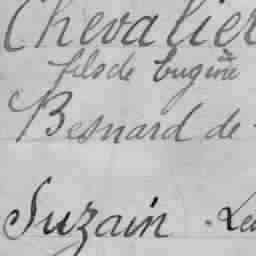 Chevalier
fils de Eugène
Besnard de
Suzain . Le